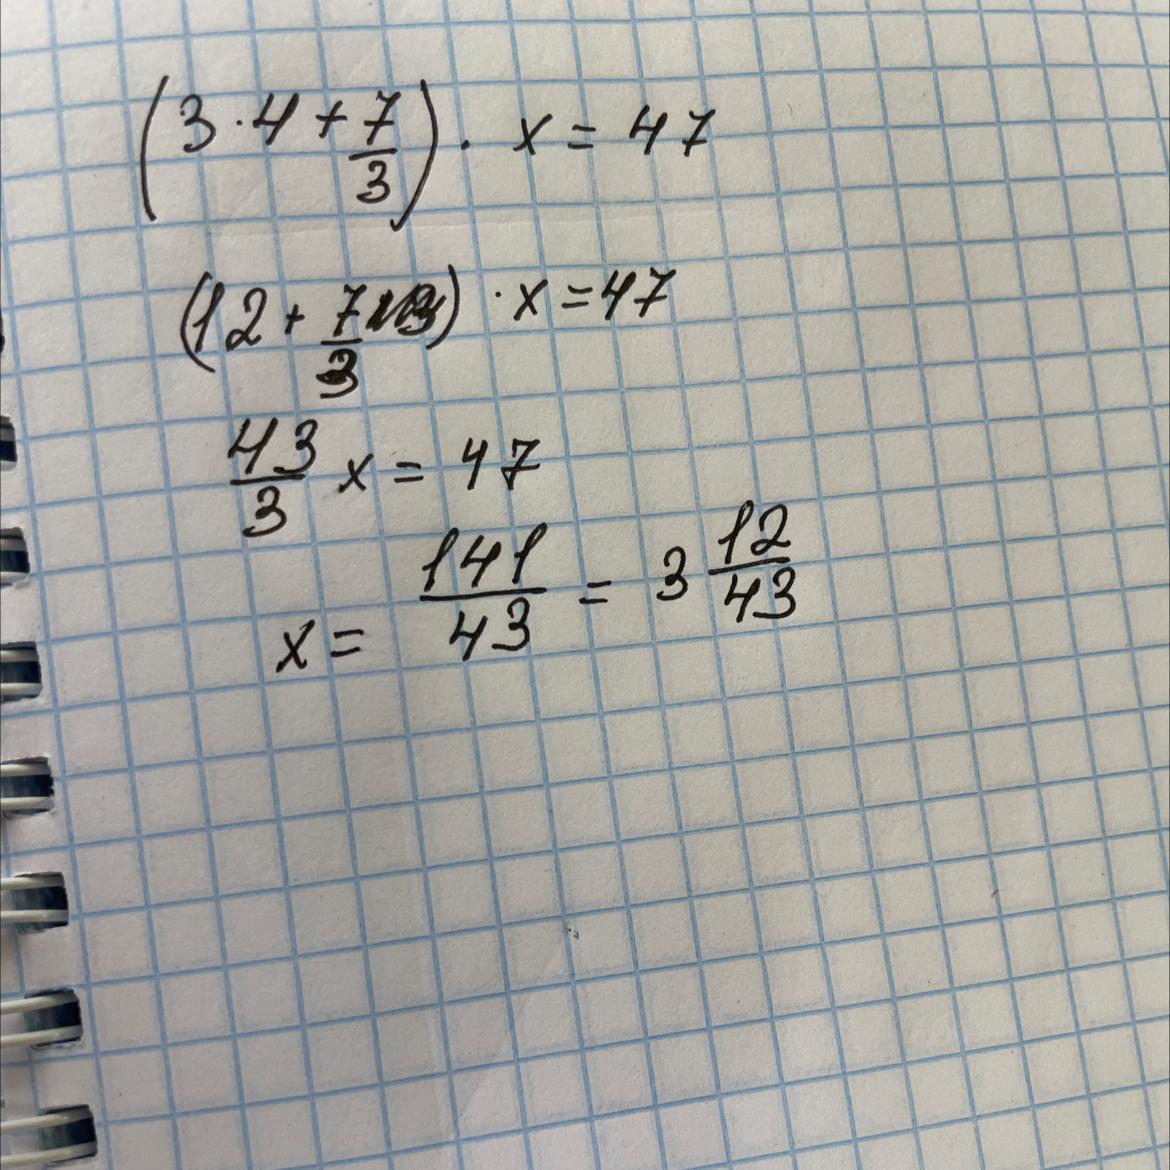 (3·4+7/3)·x=47
(12+7/3)·x=47
43/3 x=47
x=141/43=3 12/43